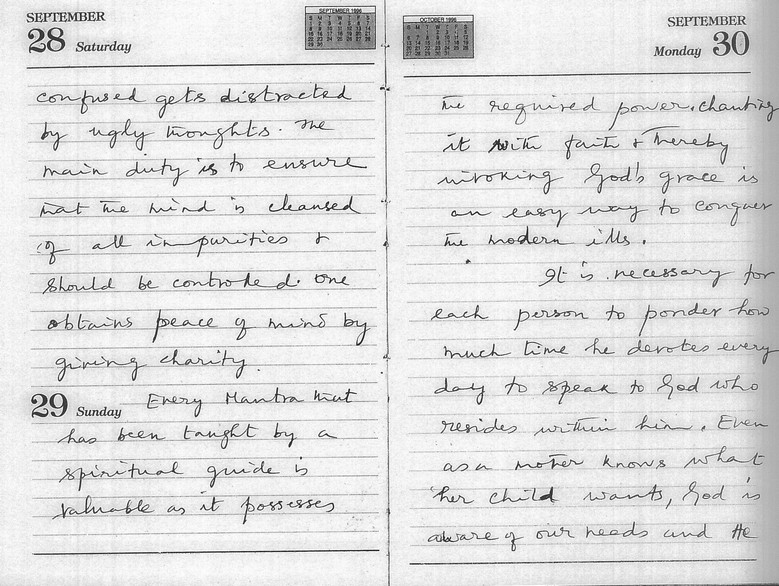 SEPTEMBER
28 Saturday
SEPTEMBER 1996
confused gets distracted
by ugly thoughts. The
main duty is to ensure
that the mind is cleansed
of all impurities &
should be controlled. One
obtains peace of mind by
giving charity.
29 Sunday Every Mantra that
has been taught by a
spiritual guide is
valuable as it possesses
OCTOBER 1996
SEPTEMBER
Monday 30
the required power. Chanting
it with faith & thereby
invoking God's grace is
an easy way to conquer
the modern ills.
It is necessary for
each person to ponder how
much time he devotes every
day to speak to God who
resides within him. Even
as a mother knows what
her child wants, God is
aware of our needs and He